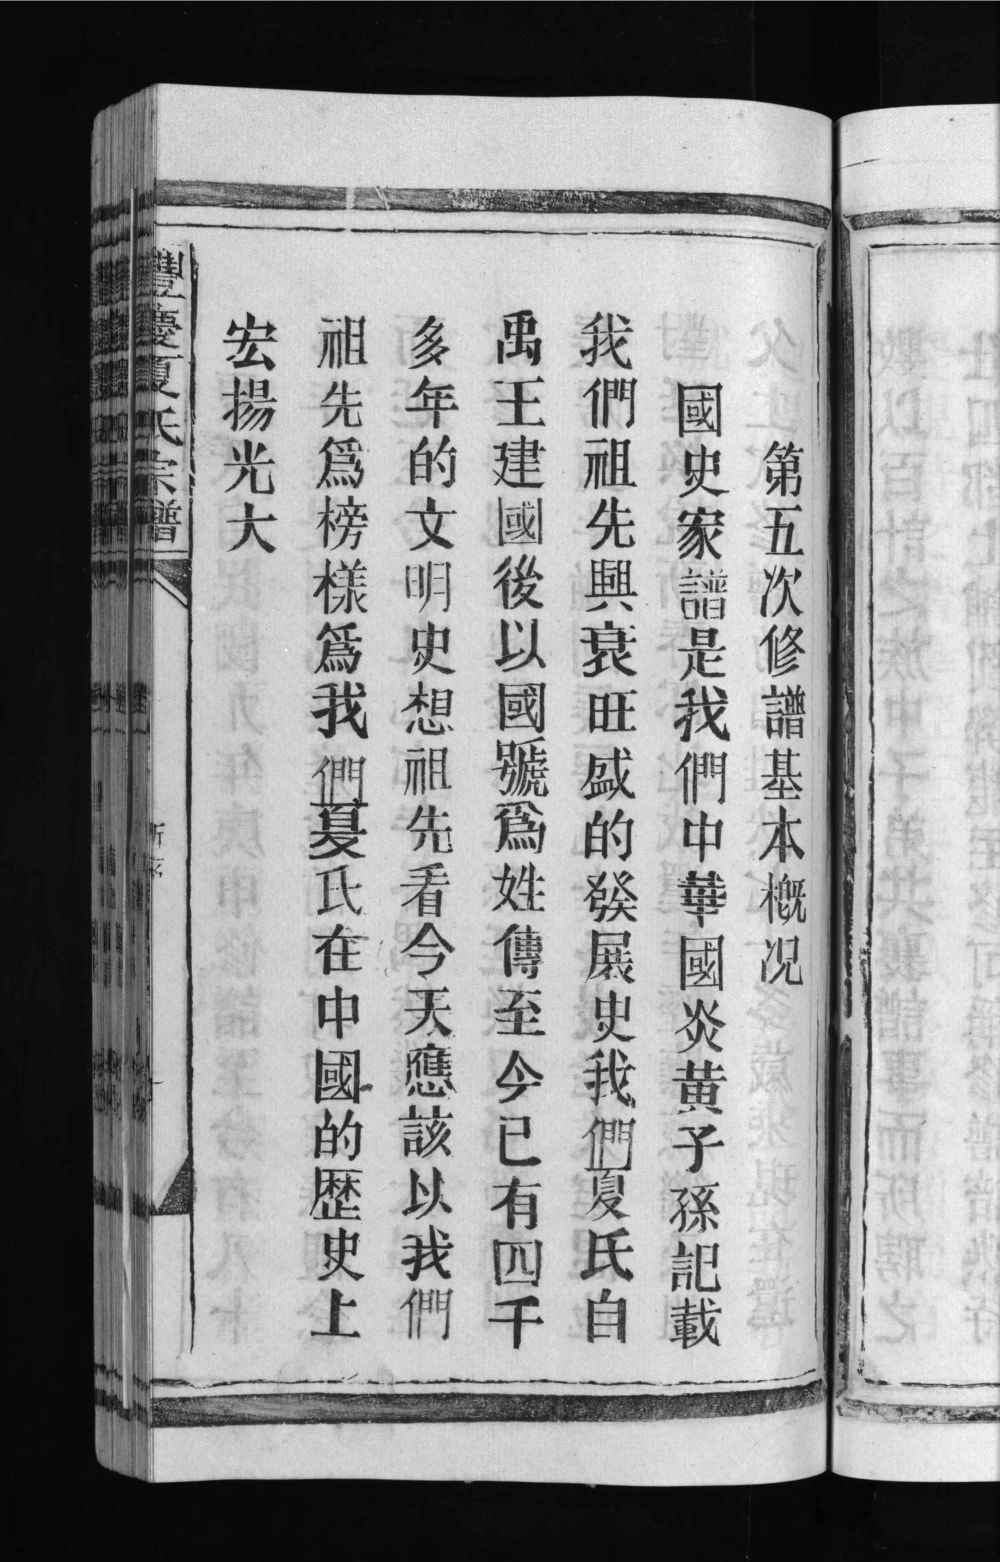 第五次修譜基本概况
國史家譜是我們中華國炎黄子孫記載
我們祖先興衰旺盛的發展史我們夏氏自
禹王建國後以國號爲姓傳至今已有四千
多年的文明史想祖先看今天應該以我們
祖先爲榜樣爲我們夏氏在中國的歴史上
宏揚光大
豐慶夏氏宗譜